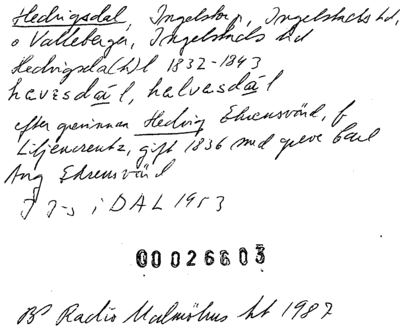 Hedvigsdal, Ingelstorp, Ingelstads hd,
o Valleberga, Ingelstads hd
Hedvigsda(h)l 1832-1843
hevesdál, helvesdál
efter grevinnan Hedvig Ehrensvärd, f
Liljencrantz, gift 1836 med greve Carl
Aug Ehrensvärd
I J-s i DAL 1953
00026603
BP Radio Malmöhus ht 1987